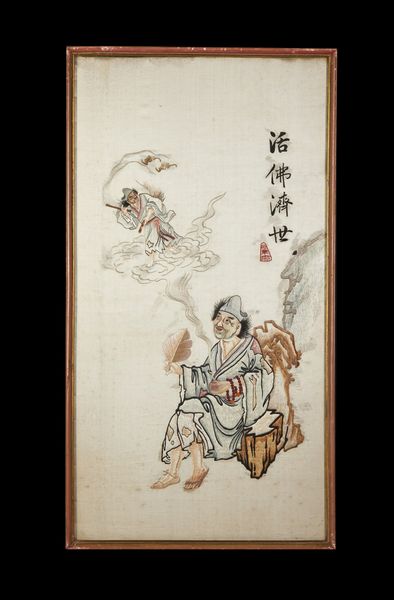 活佛濟世